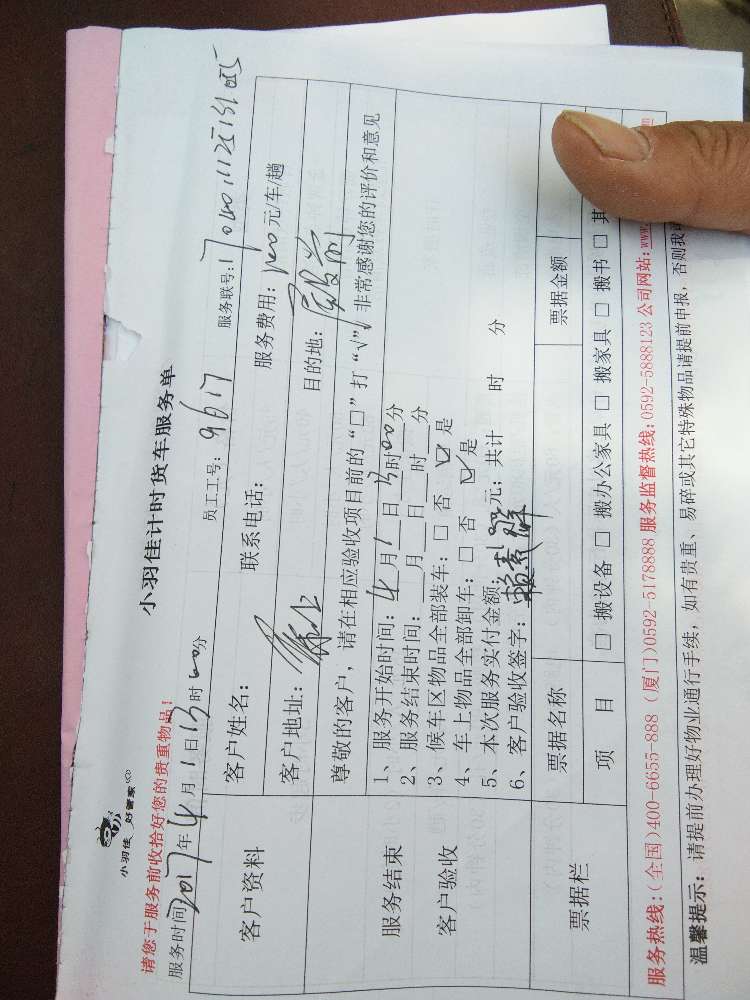 小羽佳 好管家
小羽佳计时货车服务单
请您于服务前收拾好您的贵重物品！
服务时间2017年4月1日13时00分 员工工号：9617 服务联号：
客户资料
客户姓名： 联系电话： 服务费用： 元/车/趟
客户地址： 目的地：
尊敬的客户，请在相应验收项目前的“□”打“√”，非常感谢您的评价和意见
服务结束
客户验收
1、服务开始时间：4月1日13时00分
2、服务结束时间：___月___日___时___分
3、候车区物品全部装车：□ 否 ☑ 是
4、车上物品全部卸车：□ 否 ☑ 是
5、本次服务实付金额 元；共计 时 分
6、客户验收签字：
票据栏
票据名称 票据金额
项 目 □ 搬设备 □ 搬办公家具 □ 搬家具 □ 搬书 □
服务热线：(全国)400-6655-888 (厦门)0592-5178888 服务监督热线：0592-5888123 公司网站：www.
温馨提示： 请提前办理好物业通行手续，如有贵重、易碎或其它特殊物品请提前申报，否则我